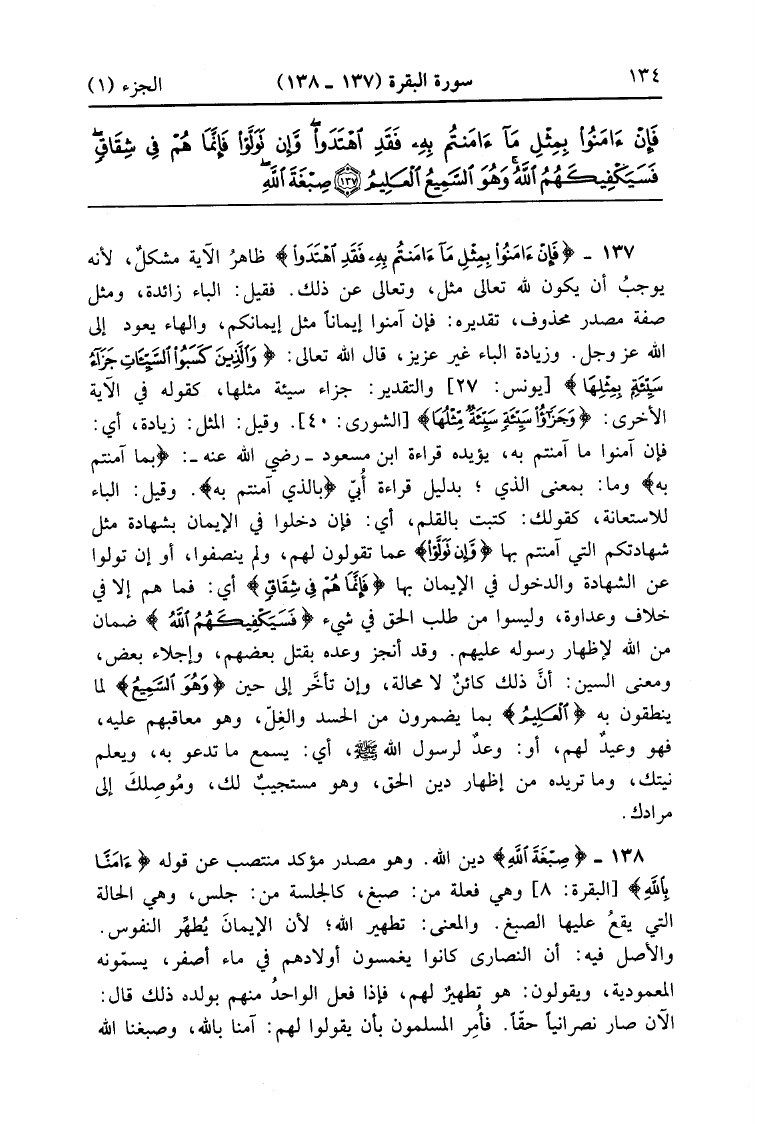 ١٣٤ سورة البقرة (١٣٧ - ١٣٨) الجزء (١)
فَإِنْ ءَامَنُوا۟ بِمِثْلِ مَآ ءَامَنتُم بِهِۦ فَقَدِ ٱهْتَدَوا۟ ۖ وَّإِن نَوَلَّوْا۟ فَإِنَّمَا هُمْ فِى شِقَاقٍ ۖ
فَسَيَكْفِيكَهُمُ ٱللَّهُ ۚ وَهُوَ ٱلسَّمِيعُ ٱلْعَـلِيمُ ﴿١٣٧﴾ صِبْغَةَ ٱللَّهِ ۖ
١٣٧ - ﴿فَإِنْ ءَامَنُوا۟ بِمِثْلِ مَآ ءَامَنتُم بِهِۦ فَقَدِ ٱهْتَدَوا۟﴾ ظاهرُ الآية مشكلٌ، لأنه
يوجبُ أن يكون لله تعالى مثل، وتعالى عن ذلك. فقيل: الباء زائدة، ومثل
صفة مصدر محذوف، تقديره: فإن آمنوا إيماناً مثل إيمانكم، والهاء يعود إلى
الله عز وجل. وزيادة الباء غير عزيز، قال الله تعالى: ﴿وَٱلَّذِينَ كَسَبُوا۟ ٱلسَّيِّـَٔاتِ جَزَآءُ
سَيِّئَةٍ بِمِثْلِهَا﴾ [يونس: ٢٧] والتقدير: جزاء سيئة مثلها، كقوله في الآية
الأخرى: ﴿وَجَزَٰٓؤُا۟ سَيِّئَةٍ سَيِّئَةٌ مِّثْلُهَا﴾ [الشورى: ٤٠]. وقيل: المثل: زيادة، أي:
فإن آمنوا ما آمنتم به، يؤيده قراءة ابن مسعود - رضي الله عنه -: ﴿بما آمنتم
به﴾ وما: بمعنى الذي ؛ بدليل قراءة أُبيّ ﴿بالذي آمنتم به﴾. وقيل: الباء
للاستعانة، كقولك: كتبت بالقلم، أي: فإن دخلوا في الإيمان بشهادة مثل
شهادتكم التي آمنتم بها ﴿وَّإِن نَوَلَّوْا۟﴾ عما تقولون لهم، ولم ينصفوا، أو إن تولوا
عن الشهادة والدخول في الإيمان بها ﴿فَإِنَّمَا هُمْ فِى شِقَاقٍ﴾ أي: فما هم إلا في
خلاف وعداوة، وليسوا من طلب الحق في شيء ﴿فَسَيَكْفِيكَهُمُ ٱللَّهُ﴾ ضمان
من الله لإظهار رسوله عليهم. وقد أنجز وعده بقتل بعضهم، وإجلاء بعض،
ومعنى السين: أنَّ ذلك كائنٌ لا محالة، وإن تأخَّر إلى حين ﴿وَهُوَ ٱلسَّمِيعُ﴾ لما
ينطقون به ﴿ٱلْعَـلِيمُ﴾ بما يضمرون من الحسد والغِلّ، وهو معاقبهم عليه،
فهو وعيدٌ لهم، أو: وعدٌ لرسول الله ﷺ، أي: يسمع ما تدعو به، ويعلم
نيتك، وما تريده من إظهار دين الحق، وهو مستجيبٌ لك، ومُوصِلكَ إلى
مرادك.
١٣٨ - ﴿صِبْغَةَ ٱللَّهِ﴾ دين الله. وهو مصدر مؤكد منتصب عن قوله ﴿ءَامَنَّا
بِٱللَّهِ﴾ [البقرة: ٨] وهي فعلة من: صبغ، كالجلسة من: جلس، وهي الحالة
التي يقعُ عليها الصبغ. والمعنى: تطهير الله؛ لأن الإيمانَ يُطهِّر النفوس.
والأصل فيه: أن النصارى كانوا يغمسون أولادهم في ماء أصفر، يسمّونه
المعمودية، ويقولون: هو تطهيرٌ لهم، فإذا فعل الواحدُ منهم بولده ذلك قال:
الآن صار نصرانياً حقّاً. فأُمِر المسلمون بأن يقولوا لهم: آمنا بالله، وصبغنا الله